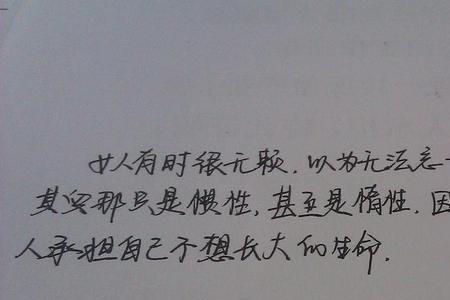 女人有时很无赖,以为无法忘
其实那只是惯性,甚至是惰性.因
人承担自己不想长大的生命.